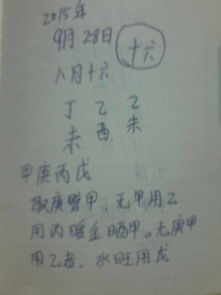 2015年
9月28日 十六
八月十六
丁 乙 乙
未 酉 未
甲庚丙戊
取庚劈甲，无甲用乙
用丙暖金晒甲。无庚甲
用乙者，水旺用戊